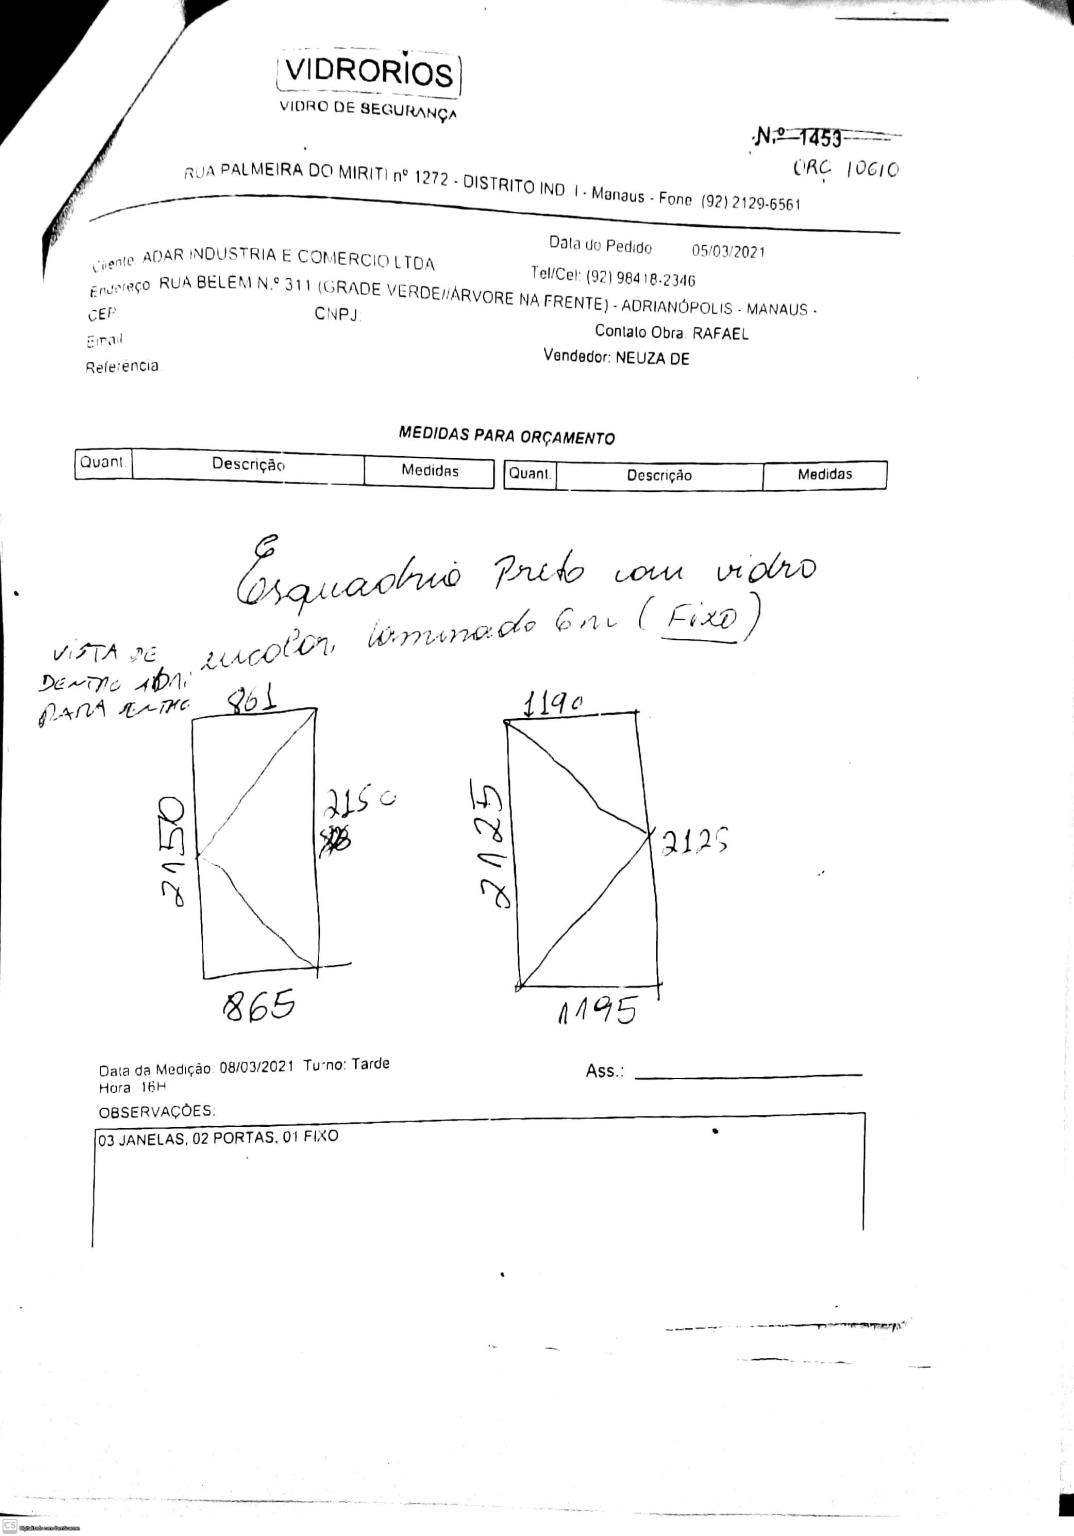 VIDRORIOS
VIDRO DE SEGURANÇA
N.º 1453
ORÇ 10610
RUA PALMEIRA DO MIRITI nº 1272 - DISTRITO IND I - Manaus - Fone (92) 2129-6561
Cliente: ADAR INDUSTRIA E COMERCIO LTDA
Data do Pedido 05/03/2021
Tel/Cel: (92) 98418-2346
Endereço RUA BELÉM N.º 311 (GRADE VERDE//ÁRVORE NA FRENTE) - ADRIANÓPOLIS - MANAUS -
CEP:
CNPJ:
Contato Obra: RAFAEL
Email
Vendedor: NEUZA DE
Referência
MEDIDAS PARA ORÇAMENTO
Quant. Descrição Medidas Quant. Descrição Medidas
Esquadria Preto com vidro
incolor, laminado 6m (Fixo)
VISTA DE
DENTRO
PARA
861
1190
2150
2150
2125
2125
865
1195
Data da Medição: 08/03/2021 Turno: Tarde
Hora 16H
Ass.:
OBSERVAÇÕES:
03 JANELAS, 02 PORTAS, 01 FIXO
CS Digitalizado com CamScanner